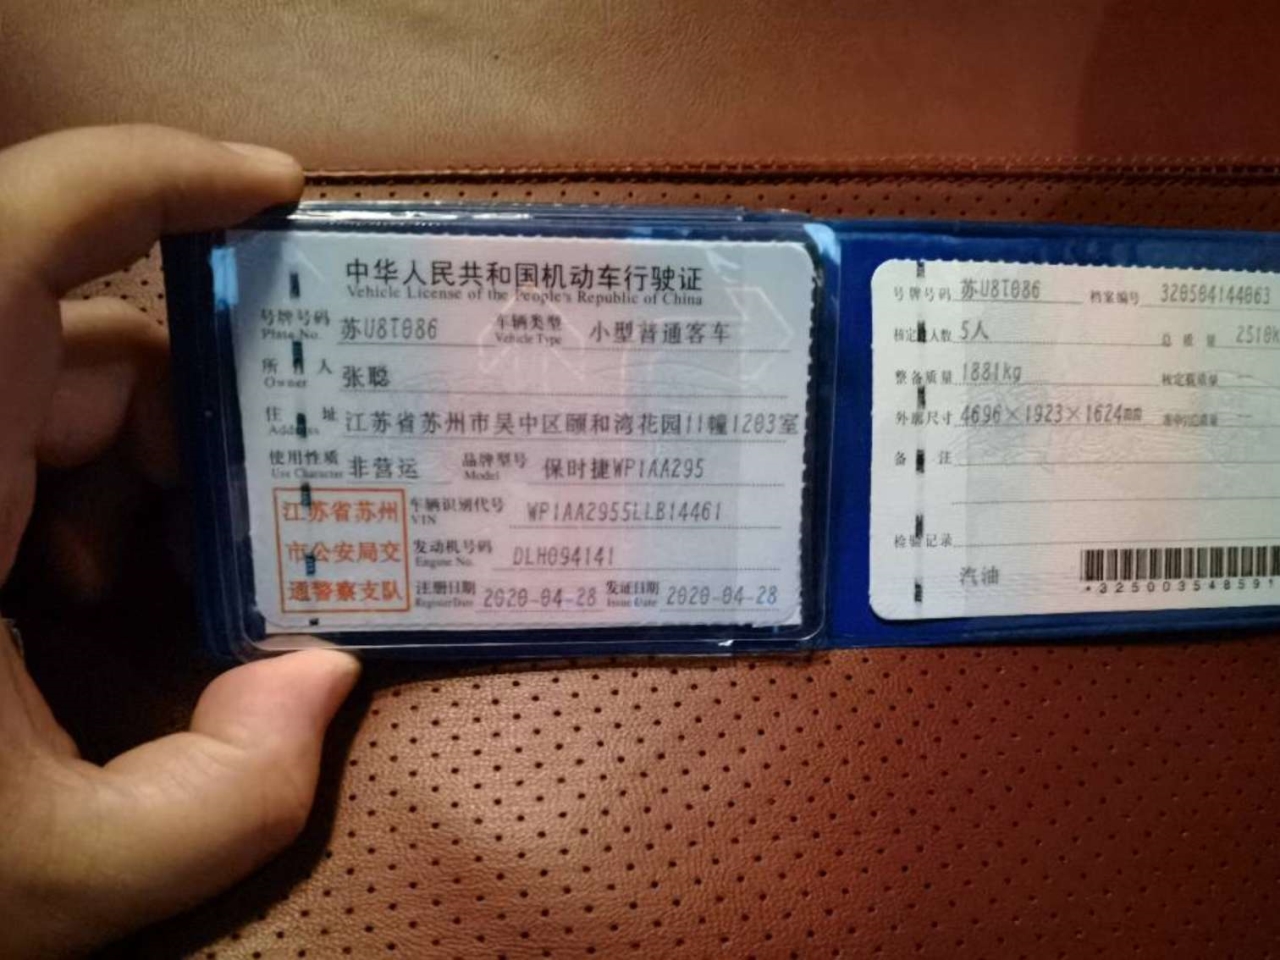 中华人民共和国机动车行驶证
Vehicle License of the People's Republic of China
号牌号码 苏U8T086 车辆类型 小型普通客车
Plate No. Vehicle Type
所有人 张聪
Owner
住址 江苏省苏州市吴中区颐和湾花园11幢1203室
Address
使用性质 非营运 品牌型号 保时捷WP1AA295
Use Character Model
江苏省苏州
市公安局交
通警察支队
车辆识别代号 WP1AA2955LLB14461
VIN
发动机号码 DLH094141
Engine No.
注册日期 2020-04-28 发证日期 2020-04-28
Register Date Issue Date
号牌号码 苏U8T086 档案编号 320504144063
核定载人数 5人 总质量 2510k
整备质量 1881kg 核定载质量 --
外廓尺寸 4696×1923×1624mm --
备注
检验记录
汽油
*325003548591